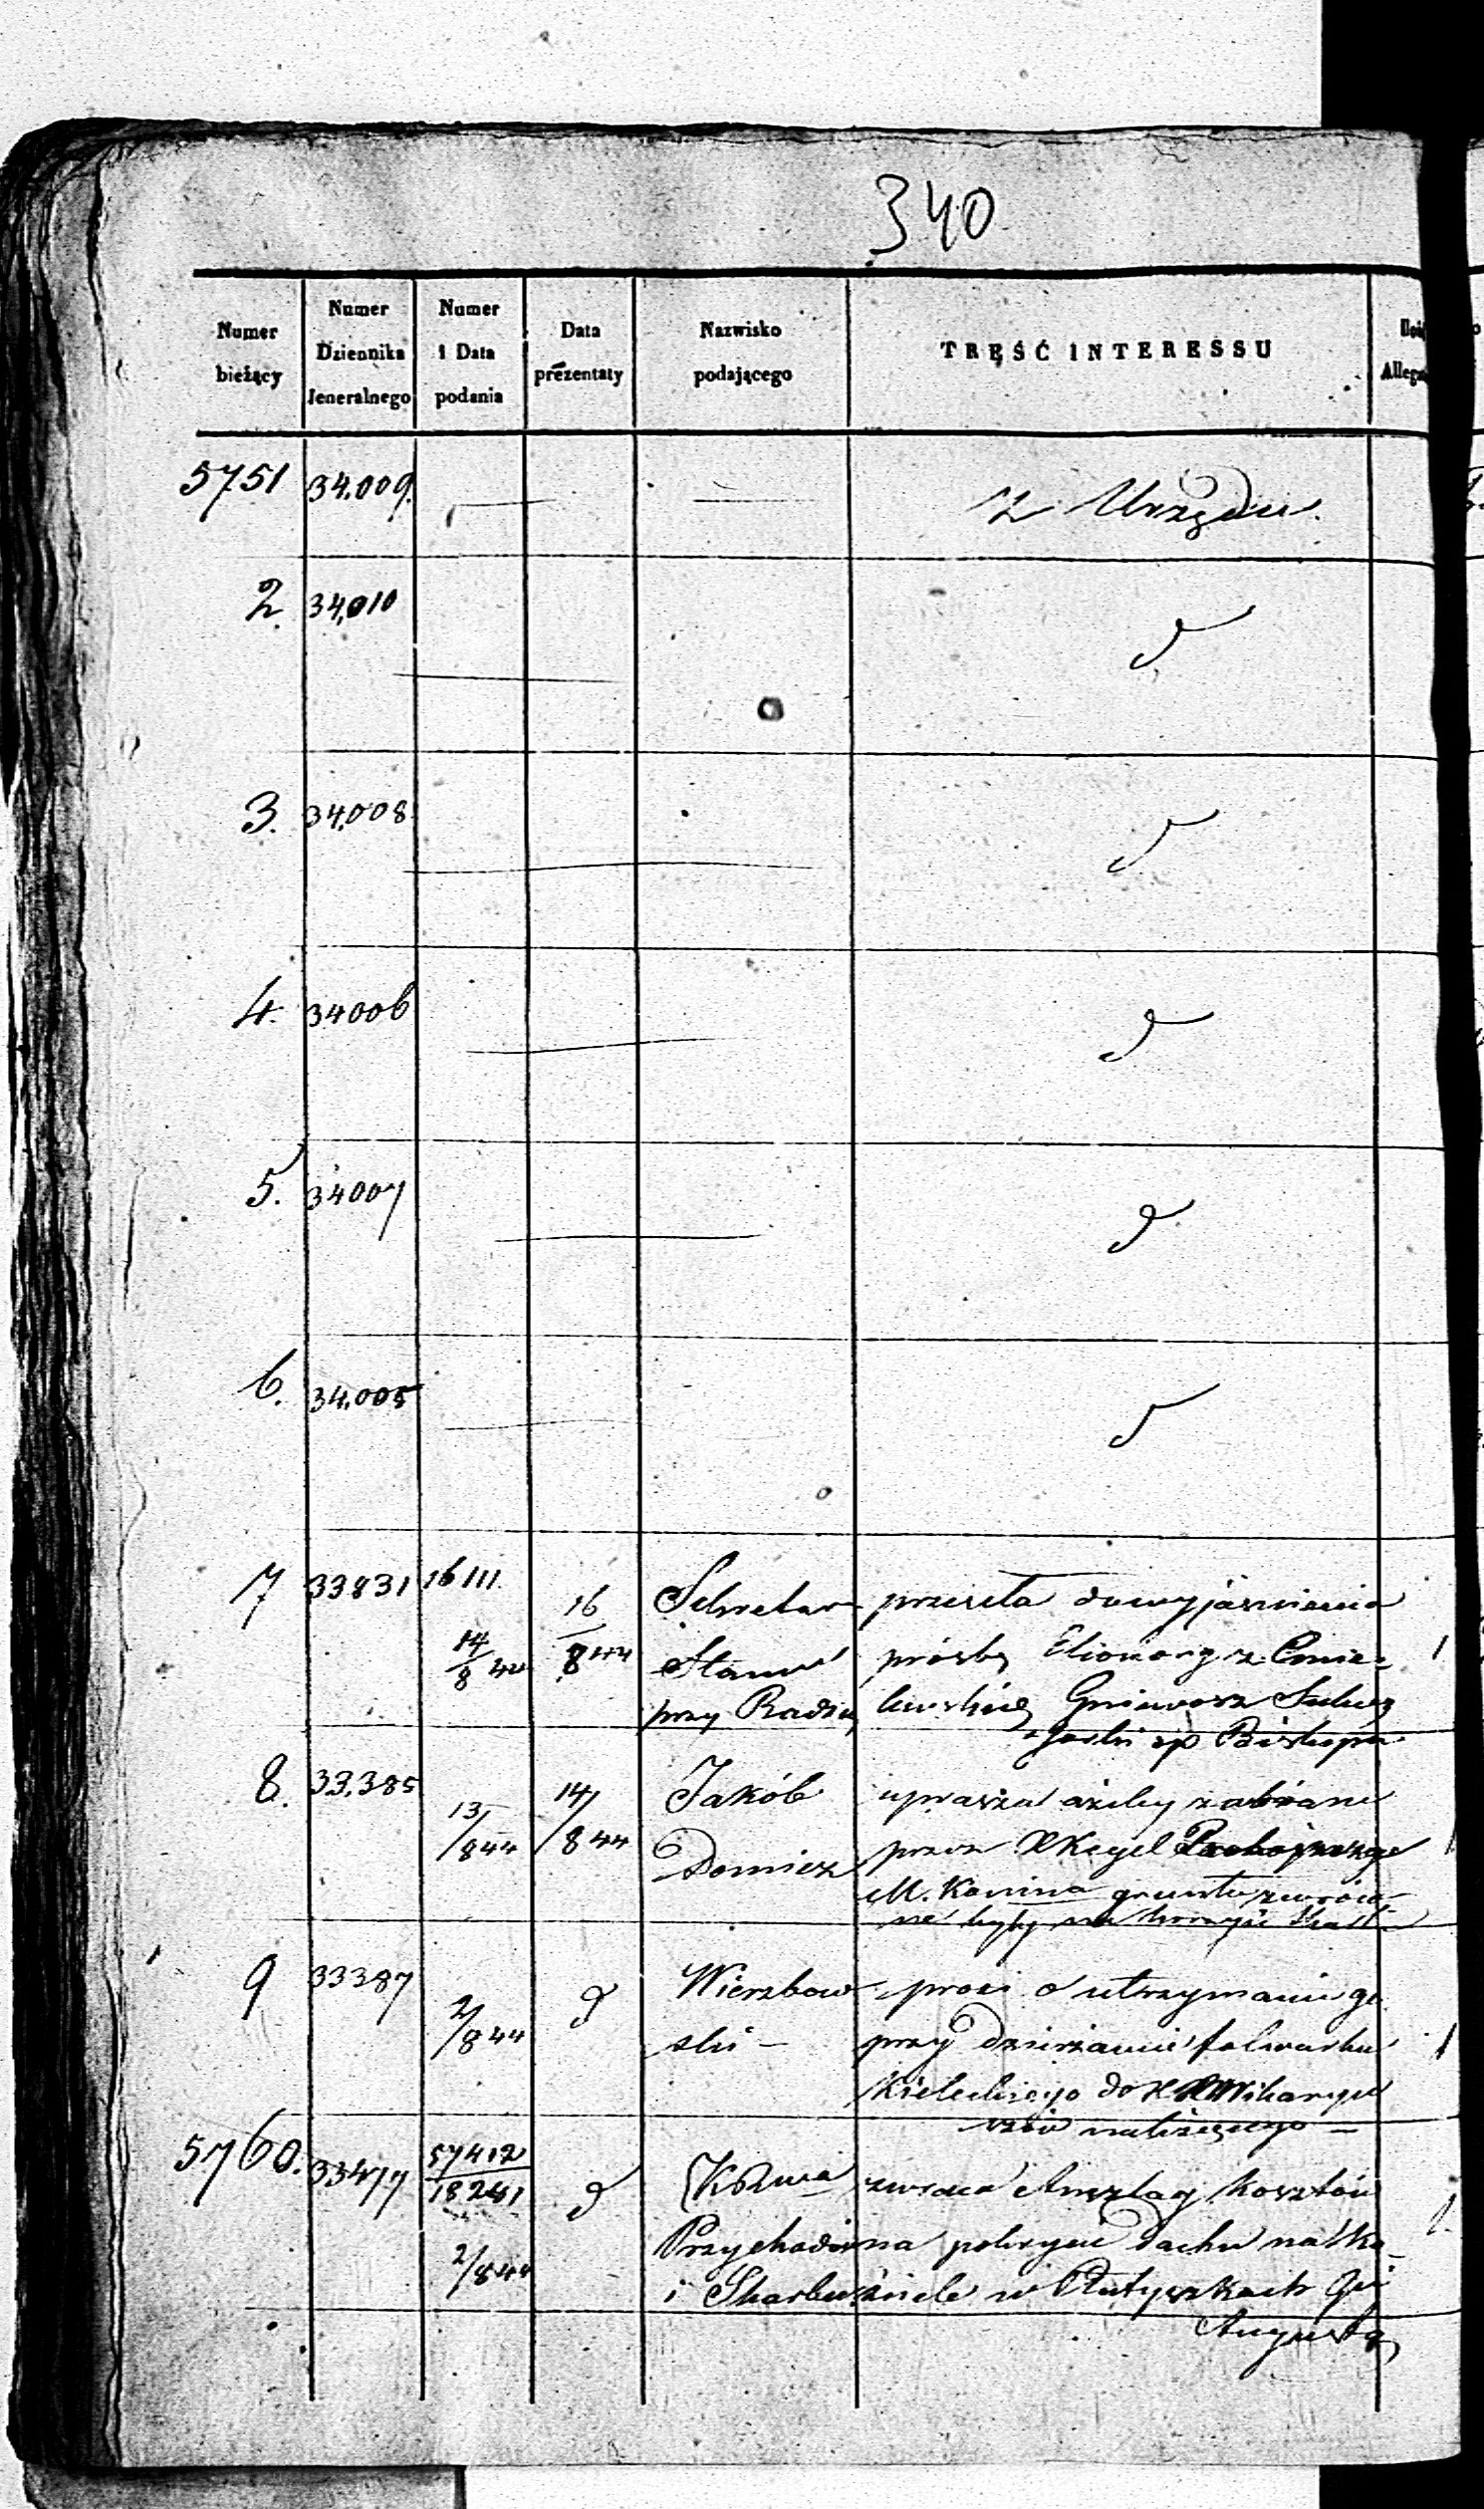 340
Numer bieżący
Numer Dziennika Jeneralnego
Numer i Data podania
Data prezentaty
Nazwisko podającego
TREŚĆ INTERESSU
Allega
5751 34,009. z Urzędu.
2. 34,010 d
3. 34,008 d
4. 34006 d
5. 34007 d
6. 34,005 d
7 33831 16111
14/8 44 16/8 44
Sekretarz
Stanu
przy Radzie
przesyła do wyjaśnienia
prośbę Elionory z
Gniewosz
Biskupa
1
8. 33,385
13/844 14/844
Jakób
Domicz
uprasza ażeby zabrane
przez
M. Konina grunta zwróco-
ne były na korzyść
9 33387
2/844 d
Wierzbow
ski –
prosi o utrzymanie go
przy dzierżawie folwarku
Kieleckiego do
należącego –
1
5760. 33477
57412/18241
2/844 d
Przychodów
i Skarbu
zwraca Anszlag kosztów
na pokrycie dachu na Ko-
ściele w Gu
Augustą